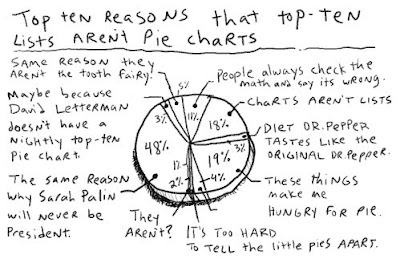 Top ten reasons that top-ten
lists aren't pie charts
Same reason they
aren't the tooth fairy.
Maybe because
David Letterman
doesn't have a
nightly top-ten
pie chart.
The same reason
why Sarah Palin
will never be
President.
They
aren't?
It's too hard
to tell the little pies apart.
People always check the
math and say its wrong.
Charts aren't lists
Diet Dr. Pepper
tastes like the
original Dr. Pepper.
These things
make me
hungry for pie.
5%
3%
11%
18%
48%
3%
19%
1%
2%
4%